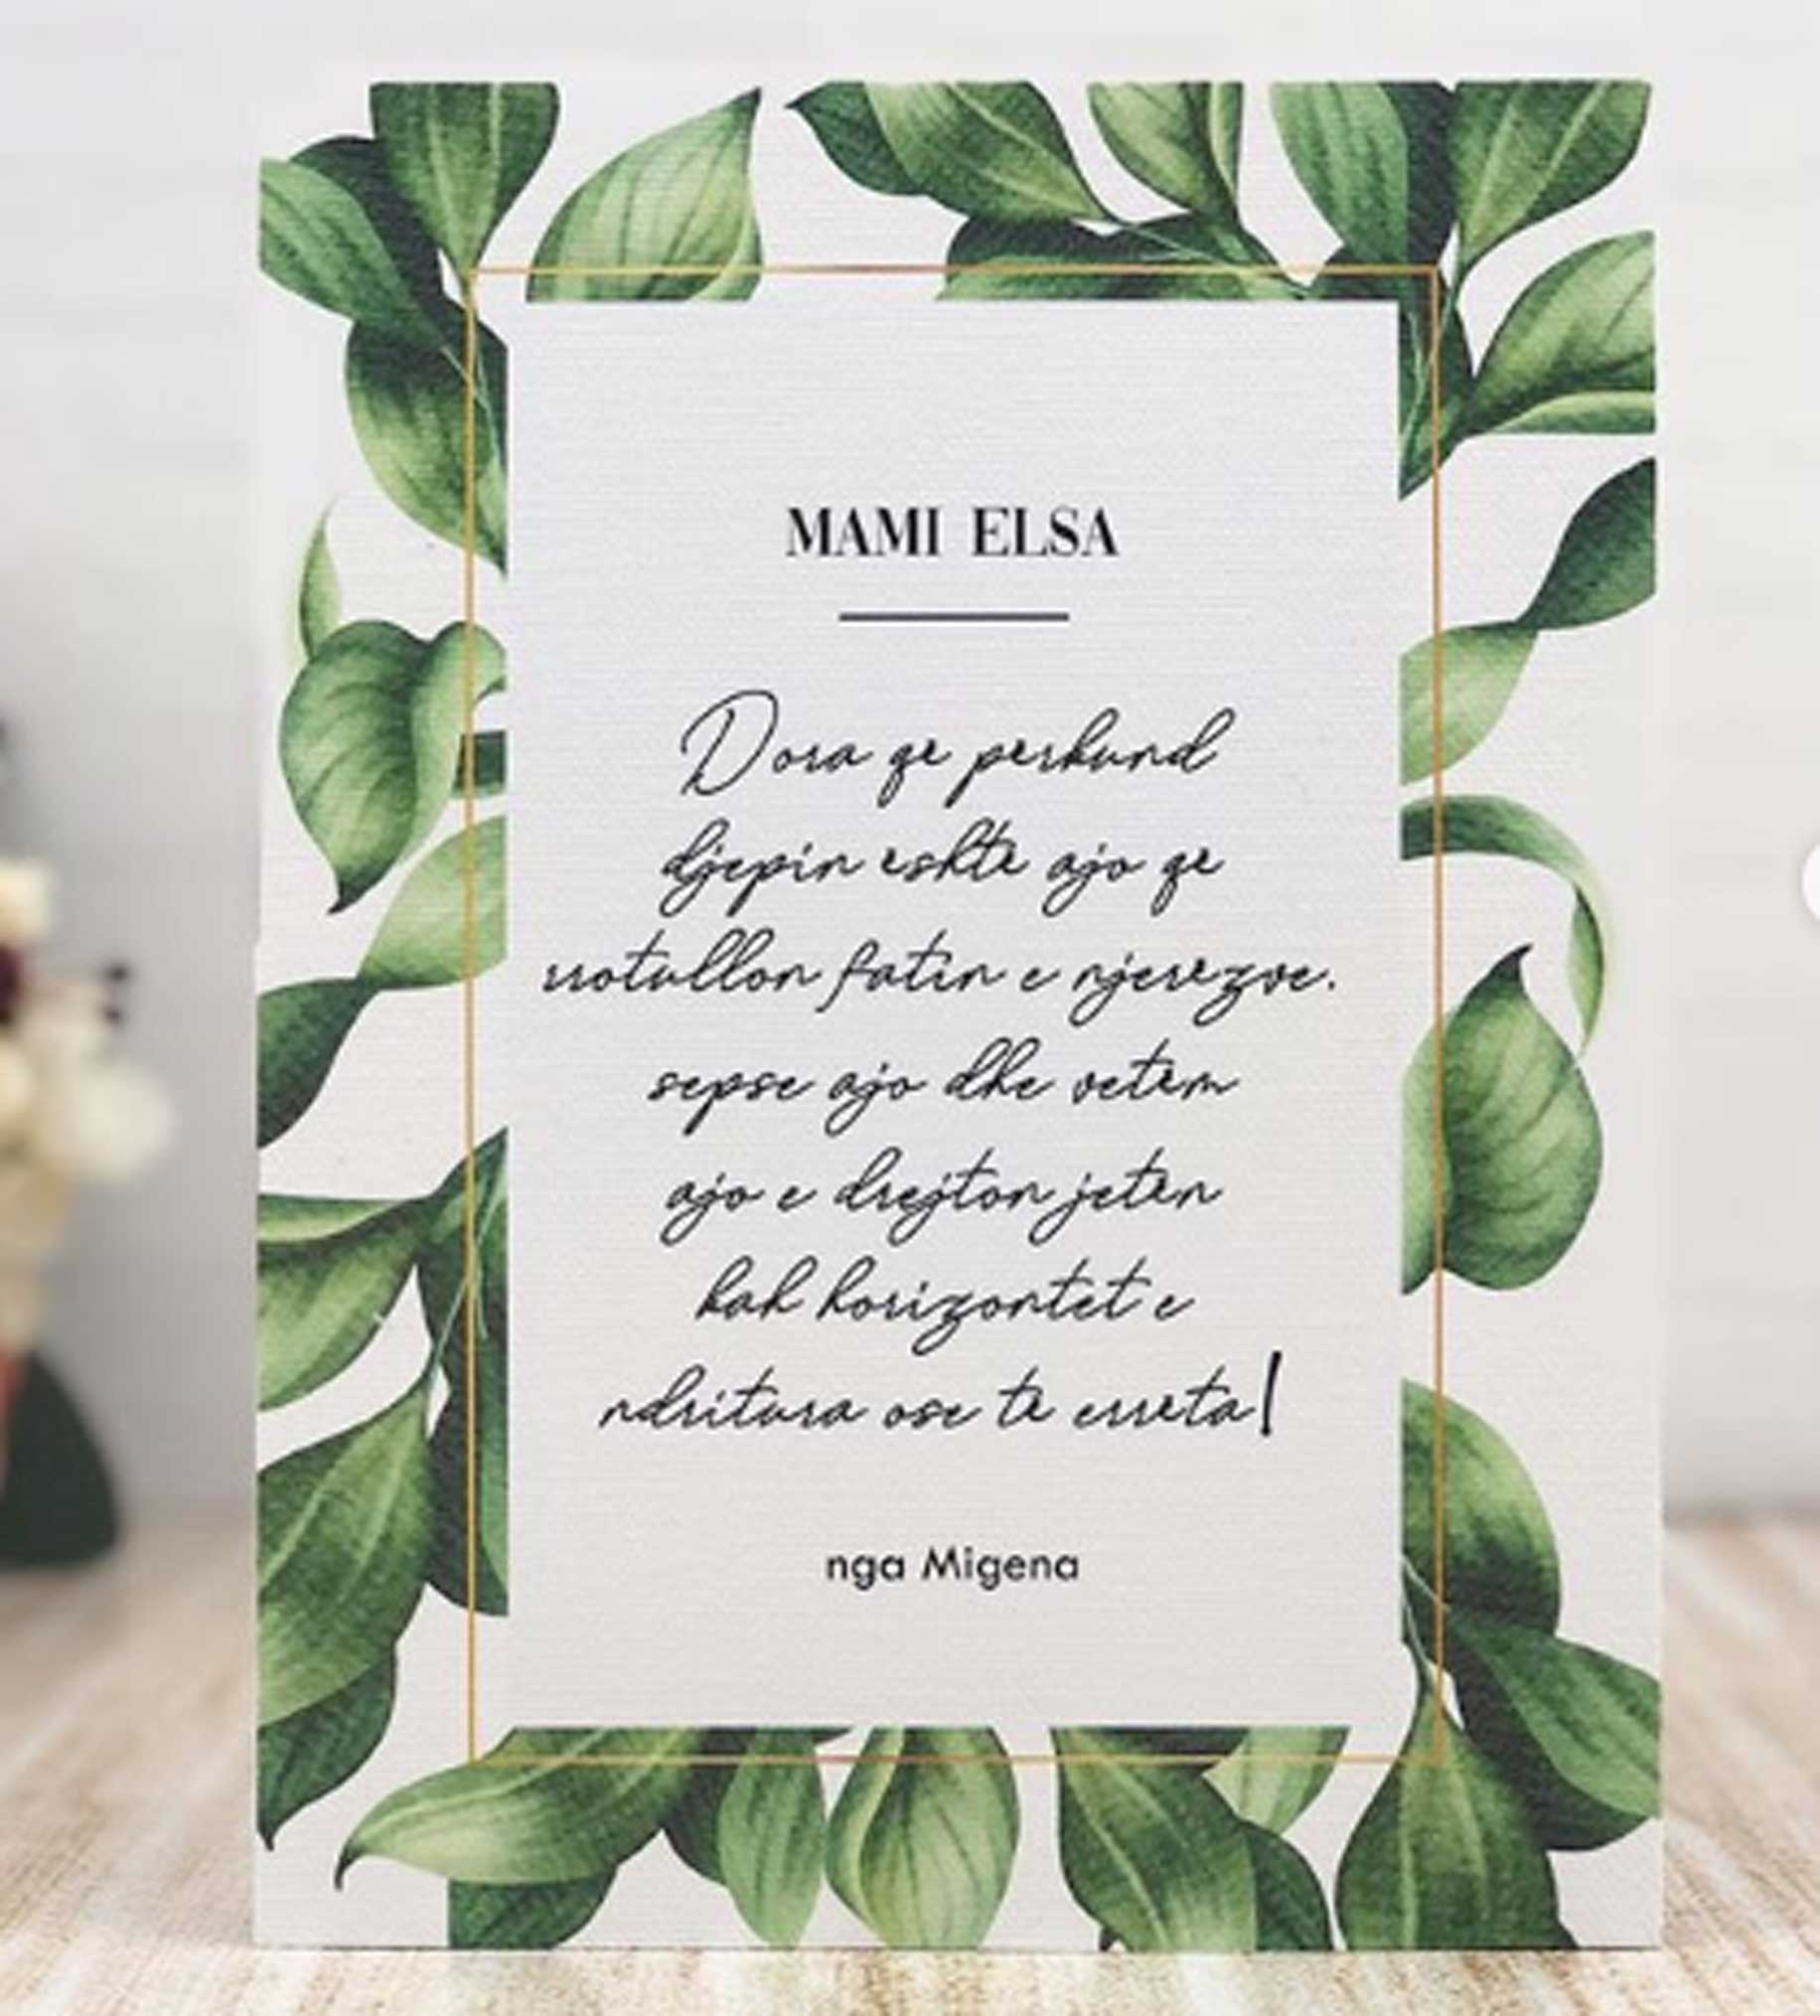 MAMI ELSA
Dora qe perkund
djepin eshtë ajo qe
rrotullon fatin e njerëzve.
sepse ajo dhe vetëm
ajo e drejton jetën
kah horizontet e
ndritura ose të errëta!
nga Migena